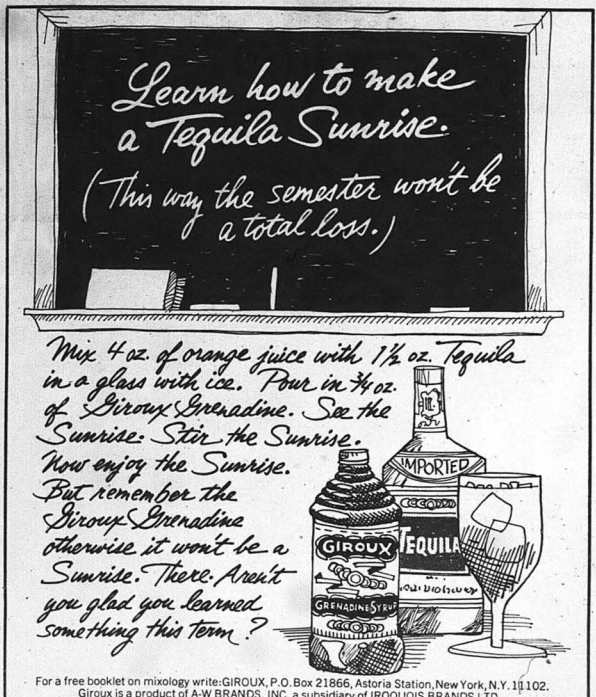 Learn how to make
a Tequila Sunrise.
(This way the semester won't be
a total loss.)
Mix 4 oz. of orange juice with 1½ oz. Tequila
in a glass with ice. Pour in ¾ oz.
of Giroux Grenadine. See the
Sunrise. Stir the Sunrise.
Now enjoy the Sunrise.
But remember the
Giroux Grenadine
otherwise it won't be a
Sunrise. There. Aren't
you glad you learned
something this term?
IMPORTED
TEQUILA
GIROUX
GRENADINE SYRUP
For a free booklet on mixology write: GIROUX, P.O. Box 21866, Astoria Station, New York, N.Y. 11102.
Giroux is a product of A-W BRANDS, INC. a subsidiary of IROQUOIS BRANDS LTD.